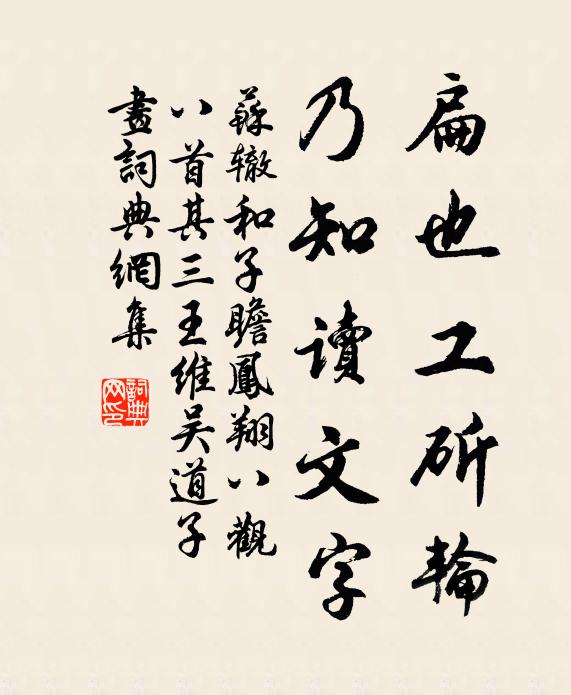 扁也工斫輪
乃知讀文字
蘇轍和子瞻鳳翔八觀
八首其三王維吴道子
畫詞典網集
詞典
网印